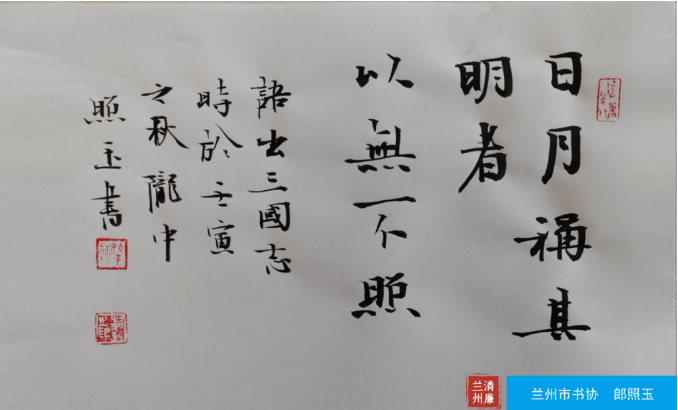 日月稱其
明者
以無一不照
語出三國志
時於壬寅
之秋隴中
照玉書
清廉
兰州
兰州市书协 郎照玉